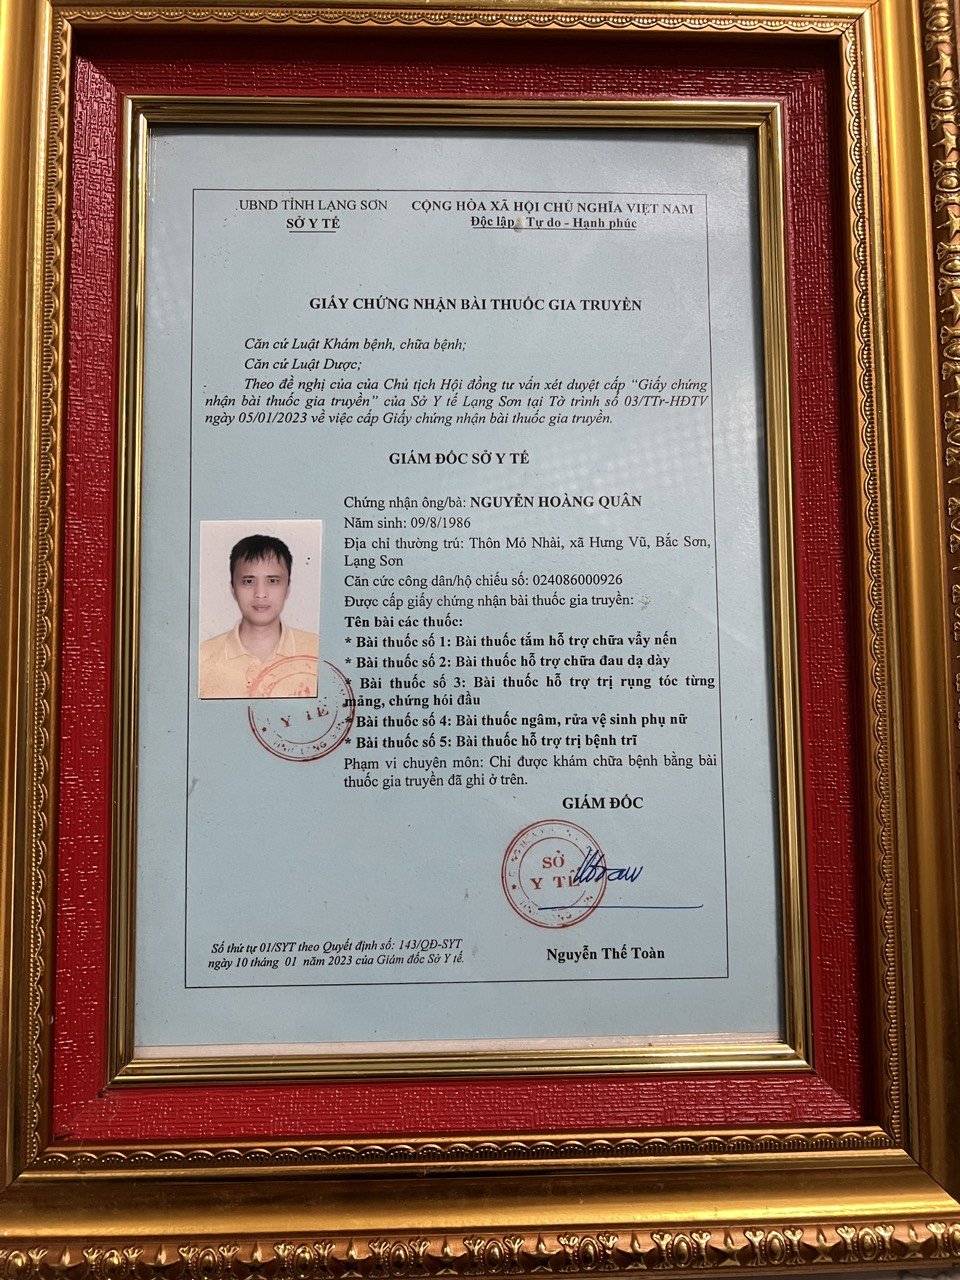 UBND TỈNH LẠNG SƠN
SỞ Y TẾ
CỘNG HÒA XÃ HỘI CHỦ NGHĨA VIỆT NAM
Độc lập - Tự do - Hạnh phúc
GIẤY CHỨNG NHẬN BÀI THUỐC GIA TRUYỀN
Căn cứ Luật Khám bệnh, chữa bệnh;
Căn cứ Luật Dược;
Theo đề nghị của của Chủ tịch Hội đồng tư vấn xét duyệt cấp “Giấy chứng
nhận bài thuốc gia truyền” của Sở Y tế Lạng Sơn tại Tờ trình số 03/TTr-HĐTV
ngày 05/01/2023 về việc cấp Giấy chứng nhận bài thuốc gia truyền.
GIÁM ĐỐC SỞ Y TẾ
Chứng nhận ông/bà: NGUYỄN HOÀNG QUÂN
Năm sinh: 09/8/1986
Địa chỉ thường trú: Thôn Mỏ Nhài, xã Hưng Vũ, Bắc Sơn,
Lạng Sơn
Căn cức công dân/hộ chiếu số: 024086000926
Được cấp giấy chứng nhận bài thuốc gia truyền:
Tên bài các thuốc:
* Bài thuốc số 1: Bài thuốc tắm hỗ trợ chữa vẩy nến
* Bài thuốc số 2: Bài thuốc hỗ trợ chữa đau dạ dày
* Bài thuốc số 3: Bài thuốc hỗ trợ trị rụng tóc từng
mảng, chứng hói đầu
* Bài thuốc số 4: Bài thuốc ngâm, rửa vệ sinh phụ nữ
* Bài thuốc số 5: Bài thuốc hỗ trợ trị bệnh trĩ
Phạm vi chuyên môn: Chỉ được khám chữa bệnh bằng bài
thuốc gia truyền đã ghi ở trên.
Y TẾ
GIÁM ĐỐC
SỞ
Y TẾ
Nguyễn Thế Toàn
Số thứ tự 01/SYT theo Quyết định số: 143/QĐ-SYT
ngày 10 tháng 01 năm 2023 của Giám đốc Sở Y tế.